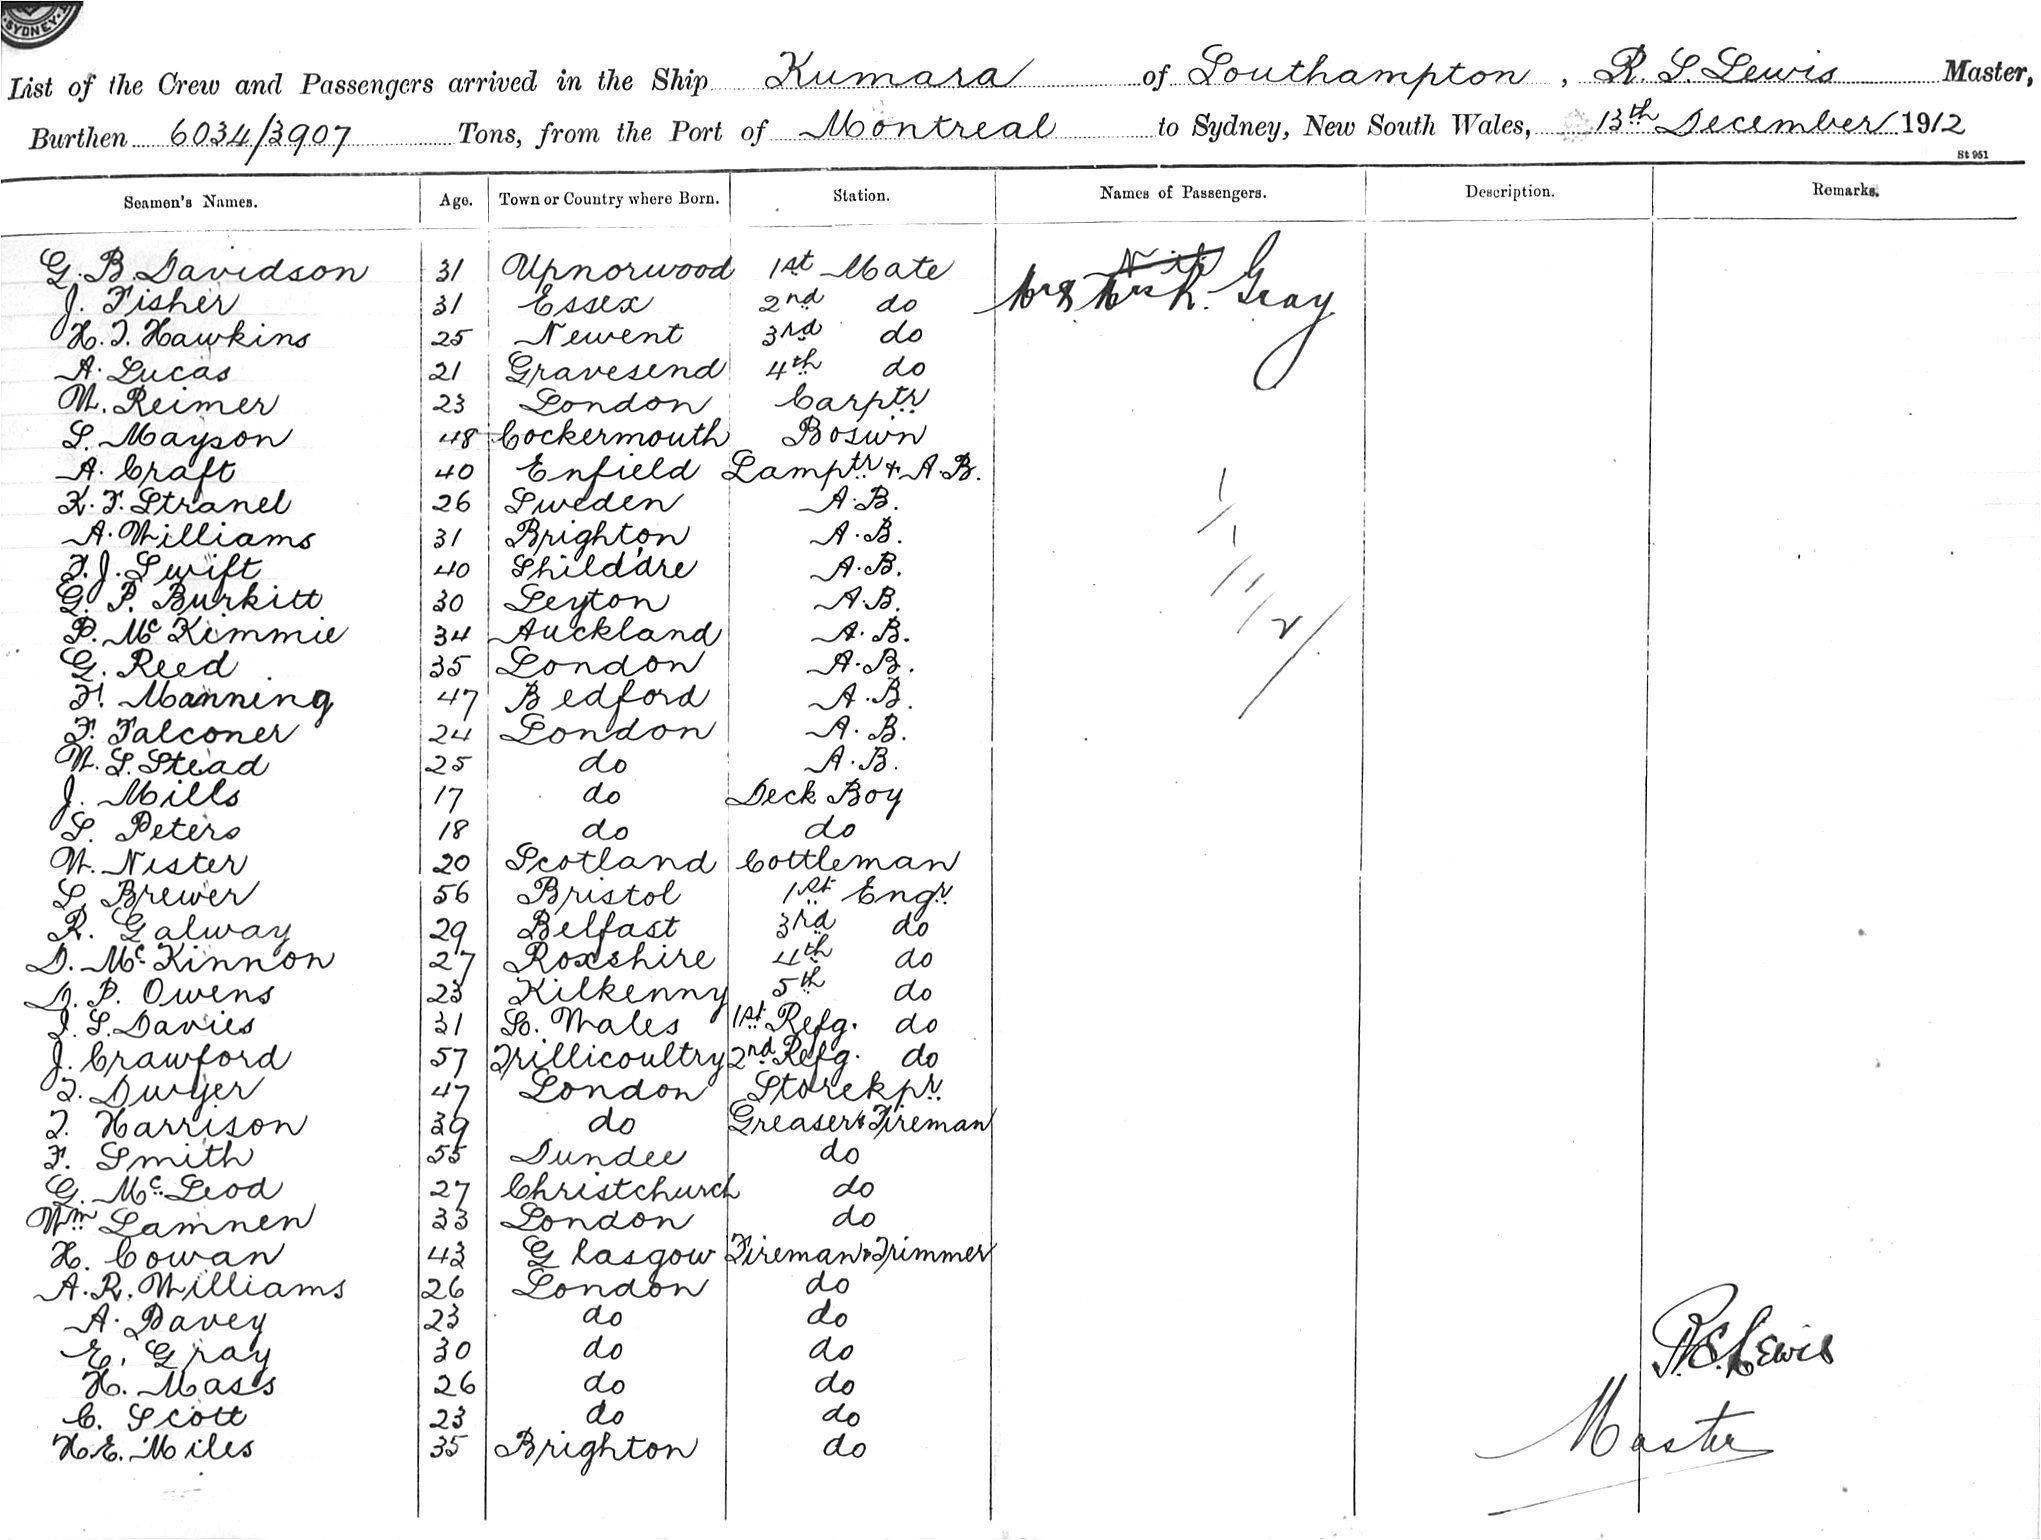 SYDNEY
List of the Crew and Passengers arrived in the Ship Kumara of Southampton, R. S. Lewis Master,
Burthen 6034/3907 Tons, from the Port of Montreal to Sydney, New South Wales, 13th December 1912
St 951
Seamen's Names. Age. Town or Country where Born. Station. Names of Passengers. Description. Remarks.
G. B. Davidson 31 Upnorwood 1st Mate
J. Fisher 31 Essex 2nd do Mr & Mrs R. Gray
H. T. Hawkins 25 Newent 3rd do
A. Lucas 21 Gravesend 4th do
W. Reimer 23 London Carptr
S. Mayson 48 Cockermouth Boswn
A. Craft 40 Enfield Lamptr & A.B.
K. F. Stranel 26 Sweden A.B.
A. Williams 31 Brighton A.B.
F. J. Swift 40 Shilddre A.B.
G. P. Burkitt 30 Leyton A.B.
P. McKimmie 34 Auckland A.B.
G. Reed 35 London A.B.
F. Manning 47 Bedford A.B.
F. Falconer 24 London A.B.
W. S. Stead 25 do A.B.
J. Mills 17 do Deck Boy
S. Peters 18 do do
W. Nister 20 Scotland Cottleman
S. Brewer 56 Bristol 1st Engr
R. Galway 29 Belfast 3rd do
D. McKinnon 27 Roxshire 4th do
D. P. Owens 23 Kilkenny 5th do
J. S. Davies 31 So. Wales 1st Refg. do
J. Crawford 57 Trillicoultry 2nd Refg. do
T. Dwyer 47 London Storekpr
T. Harrison 39 do Greaser & Fireman
F. Smith 55 Dundee do
G. McLeod 27 Christchurch do
Wm Lamnen 33 London do
H. Cowan 43 Glasgow Fireman & Trimmer
A. R. Williams 26 London do
A. Davey 23 do do
E. Gray 30 do do
H. Mass 26 do do
C. Scott 23 do do
H. E. Miles 35 Brighton do
R.S. Lewis
Master